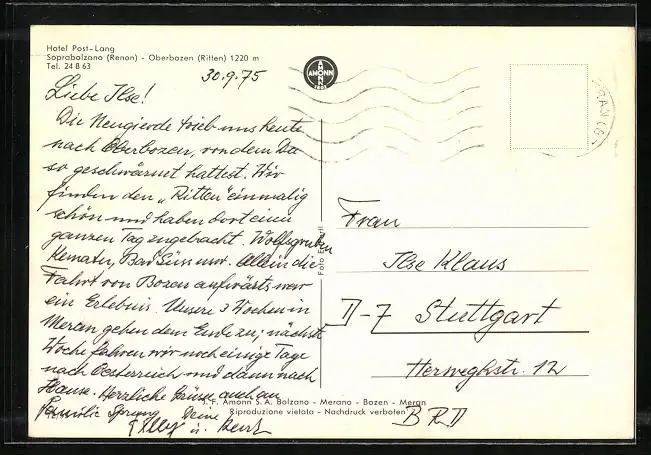 Hotel Post-Lang
Soprabolzano (Renon) - Oberbozen (Ritten) 1220 m
Tel. 24 8 63
30.9.75
Liebe Ilse!
Die Neugierde trieb uns heute
nach Oberbozen, von dem Du
so geschwärmt hattest. Wir
finden den „Ritten" einmalig
schön und haben dort einen
ganzen Tag zugebracht. Wolfsgruben
Kematen, Bad Süss usw. Allein die
Fahrt von Bozen aufwärts war
ein Erlebnis. Unsere 3 Wochen in
Meran gehen dem Ende zu; nächste
Woche fahren wir noch einige Tage
nach Oesterreich und dann nach
Hause. Herzliche Grüsse auch an
Familie Sprung Deine
u. Kurt
AMONN
Foto
Frau
Ilse Klaus
D-7 Stuttgart
Herweghstr. 12
BRD
J. F. Amonn S.A. Bolzano - Merano - Bozen - Meran
Riproduzione vietata - Nachdruck verboten